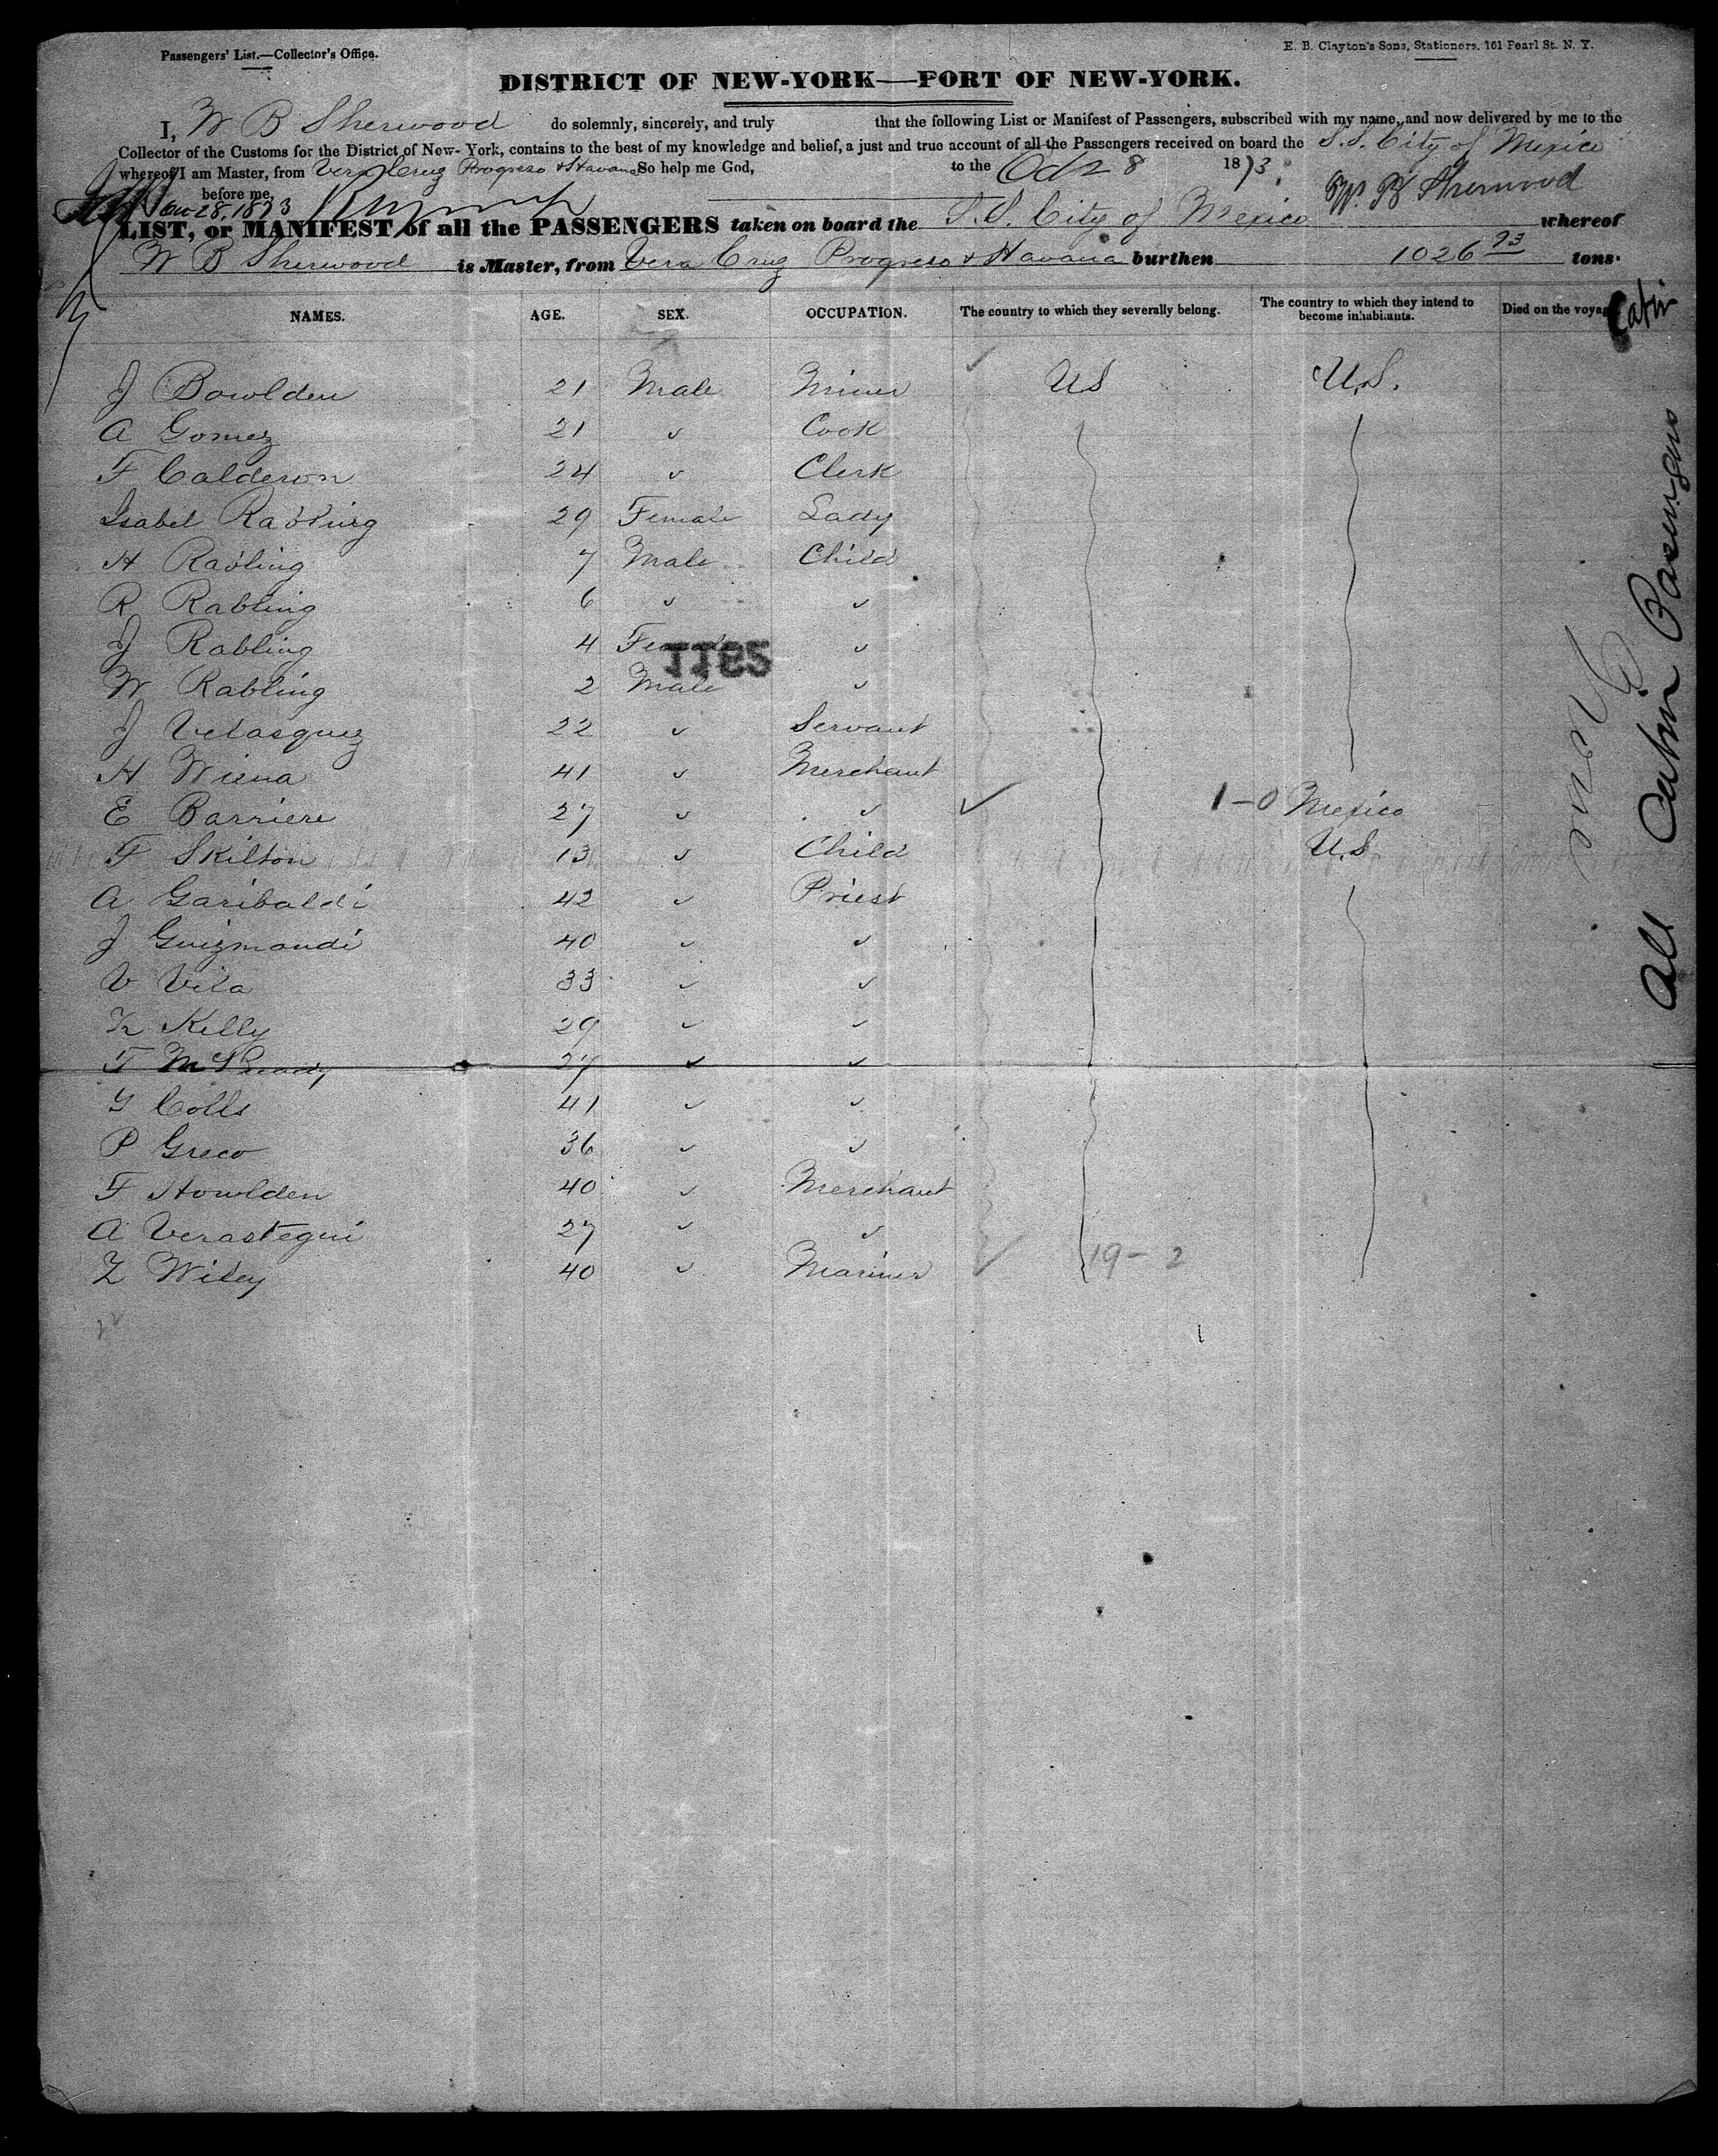 Passengers' List.—Collector's Office.
E. B. Clayton's Sons, Stationers, 161 Pearl St. N. Y.
DISTRICT OF NEW-YORK—PORT OF NEW-YORK.
I, W B Sherwood do solemnly, sincerely, and truly that the following List or Manifest of Passengers, subscribed with my name, and now delivered by me to the
Collector of the Customs for the District of New-York, contains to the best of my knowledge and belief, a just and true account of all the Passengers received on board the S.S. City of Mexico
whereof I am Master, from Vera Cruz Progreso & Havana So help me God, to the Oct 28 1873.
before me, W. B Sherwood
28, 1873
LIST, or MANIFEST of all the PASSENGERS taken on board the S.S. City of Mexico whereof
W B Sherwood is Master, from Vera Cruz Progreso & Havana burthen 1026 93 tons.
NAMES. AGE. SEX. OCCUPATION. The country to which they severally belong. The country to which they intend to become inhabitants. Died on the voyage
J Bowlden 21 Male Miner US U.S.
A Gomez 21 " Cook
F Calderon 24 " Clerk
Isabel Rabling 29 Female Lady
H Rabling 7 Male Child
R Rabling 6 " "
J Rabling 4 Female "
W Rabling 2 Male "
J Velasquez 22 " Servant
H Wiena 41 " Merchant
E Barriere 27 " " 1-0 Mexico
F Skilton 13 " Child U.S.
A Garibaldi 42 " Priest
J Guizmandi 40 " "
V Vila 33 " "
K Kelly 29 " "
F 27 " "
G Colls 41 " "
P Greco 36 " "
F Howlden 40 " Merchant
A Verastegui 27 " "
Z Wiley 40 " Mariner 19-2
Cabin
All Cabin Passengers